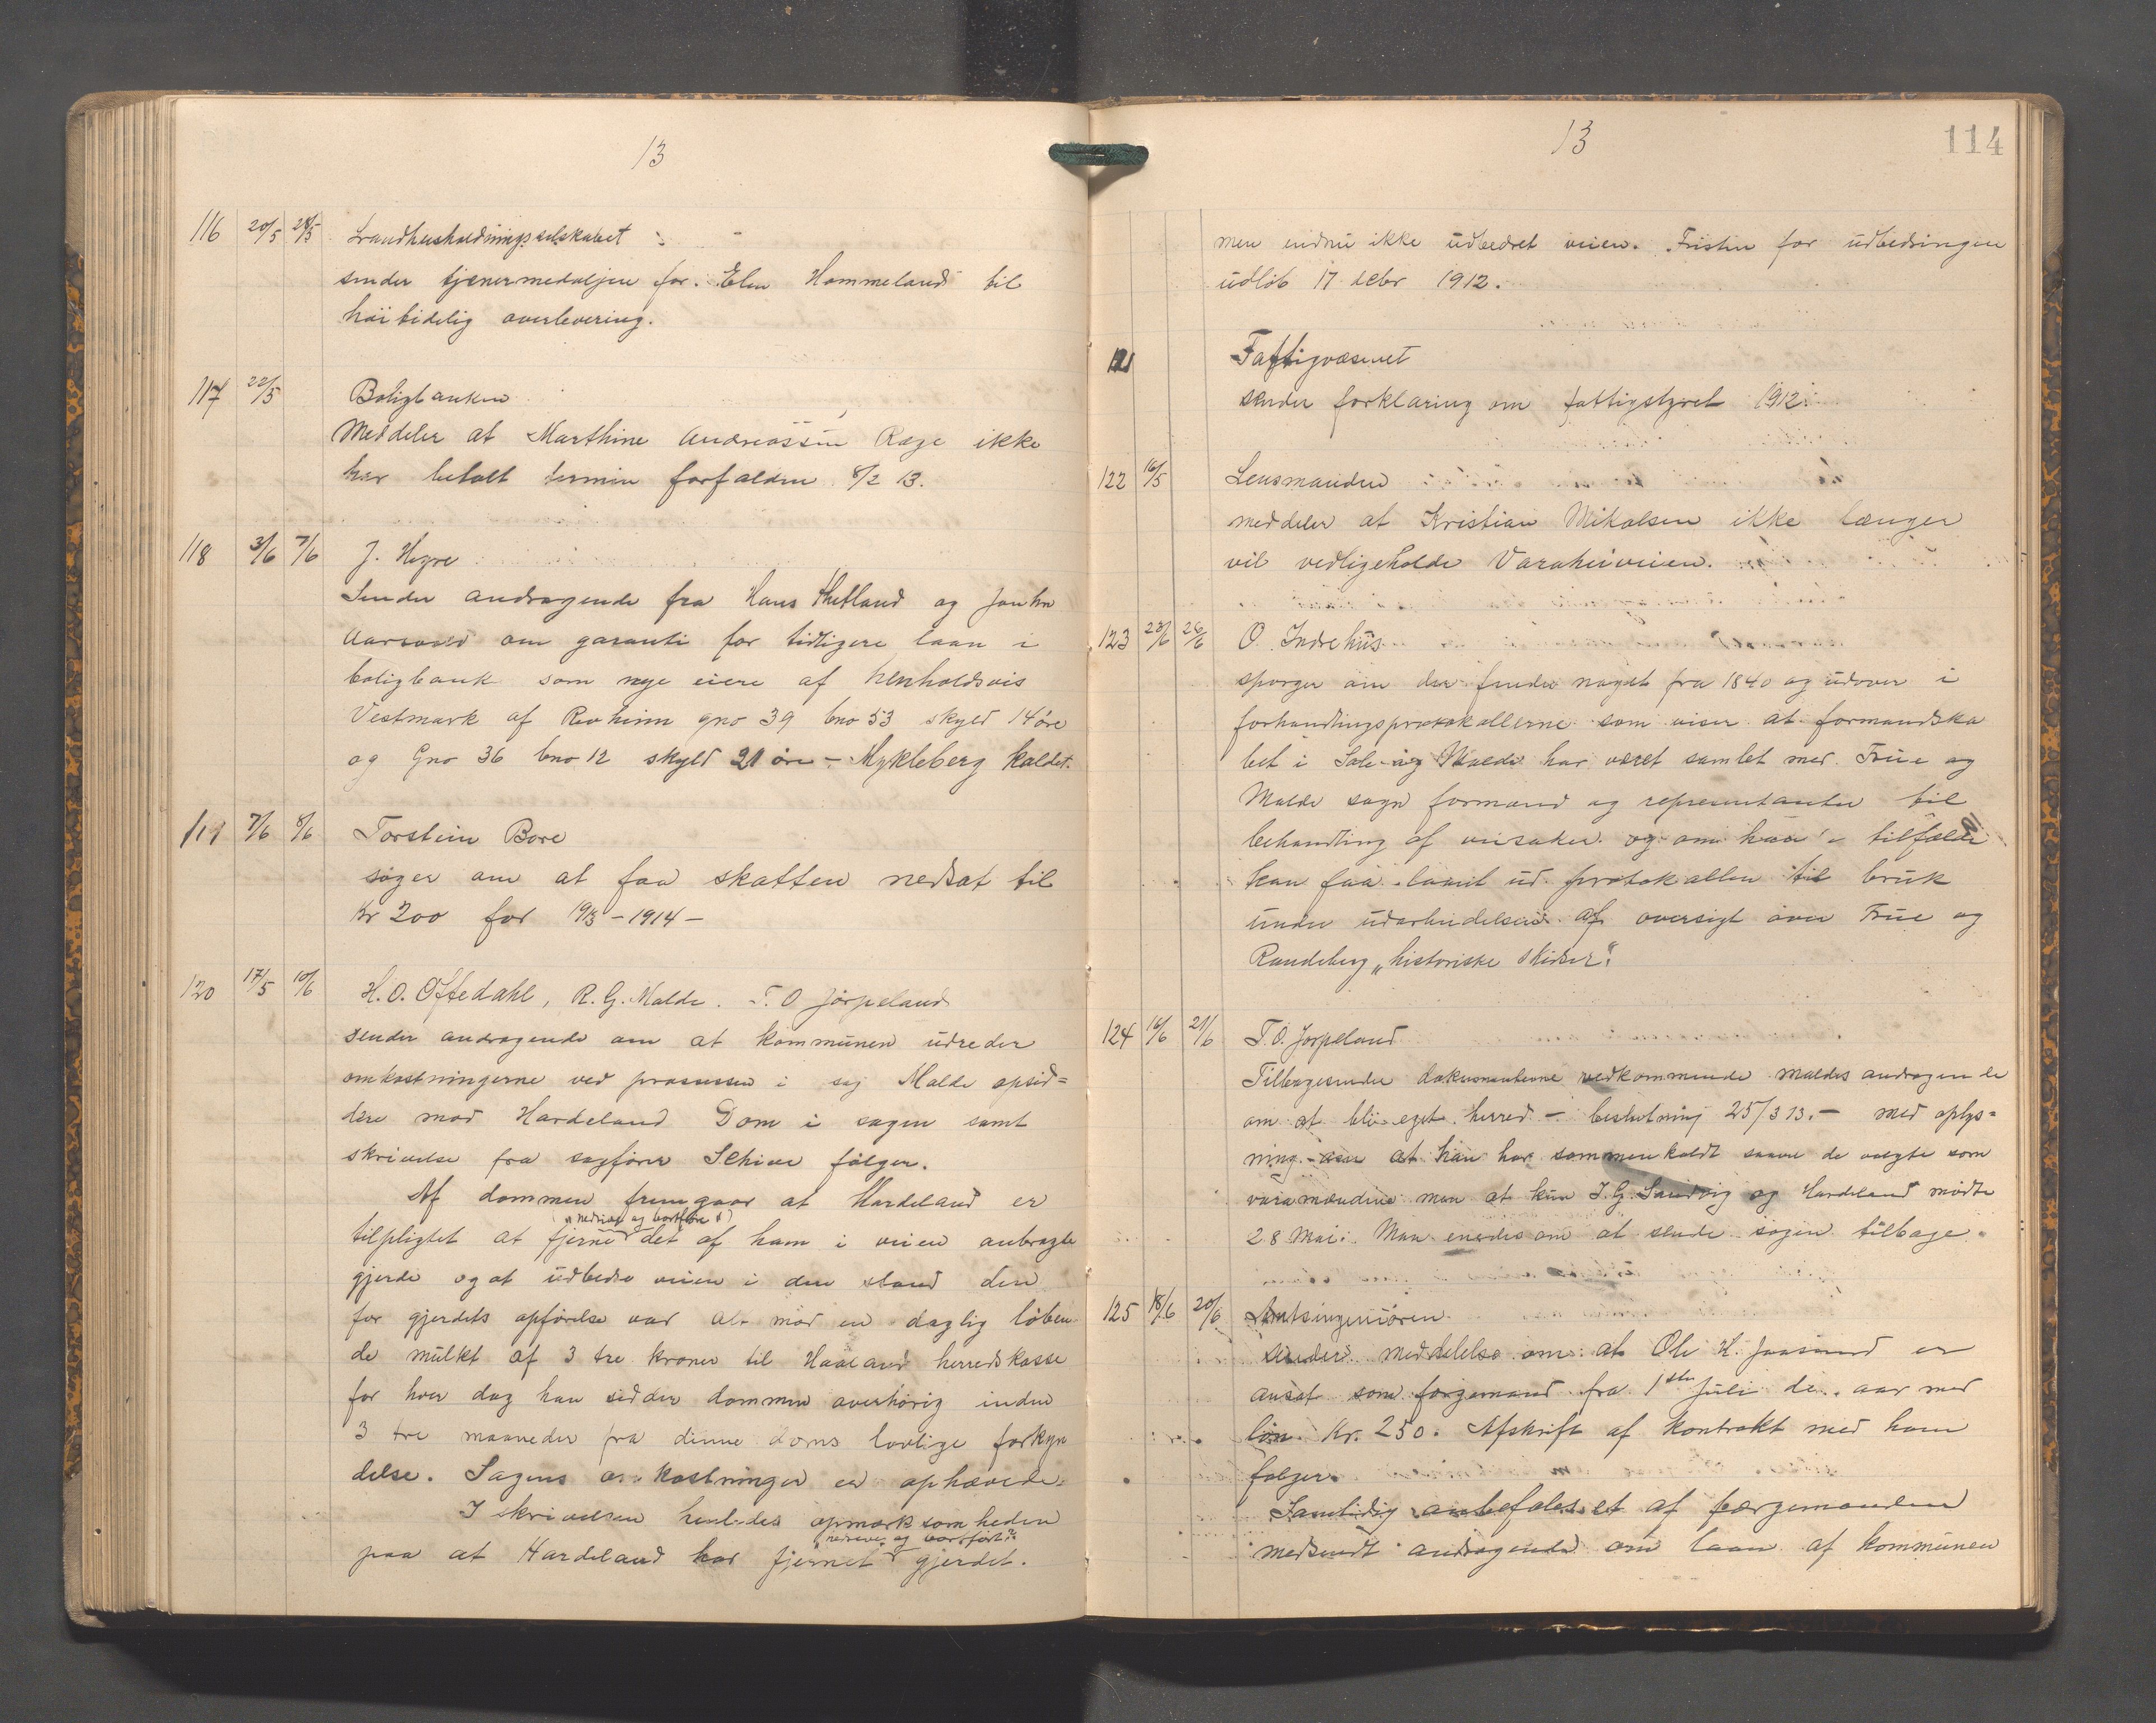 13
116 20/5 24/5 Landhusholdningsselskabet
sender tjenermedaljen for Elen Hommeland til
høitidelig overlevering.
117 22/5 Boligbanken
Meddeler at Marthine Andreassen Rage ikke
har betalt termin forfalden 8/2 13.
118 3/6 7/6 J. Hegre
Sender andragende fra Hans Thetland og
Aarsvold om garanti for tidligere laan i
boligbank som nye eiere af henholdsvis
Vestmark af Revheim gno 39 bno 53 skyld 14 øre
og Gno 36 bno 12 skyld 21 øre - Mykleberg kaldet.
119 7/6 8/6 Torstein Bore
søger om at faa skatten nedsat til
Kr 200 for 1913-1914 -
120 17/5 10/6 H. O. Offedahl, R. G. Malde. T. O Jørpeland
sender andragende om at kommunen udreder
omkostningerne ved processen i sag Malde opsid=
dere mod Hardeland Dom i sagen samt
skrivelse fra sagfører Schive følger.
Af dommen fremgaar at Hardeland er
(nedrive og bortføre)
tilpligtet at fjerne det af ham i veien anbragte
gjerde og at udbedre veien i den stand den
for gjerdets opførelse var alt mod en daglig løben
de mulkt af 3 tre kroner til Haaland herredskasse
for hver dag han sidder dommen overhørig inden
3 tre maaneder fra denne doms lovlige forkyn
delse. Sagens omkostninger er ophævede.
I skrivelsen henledes opmærksomheden
nedrevet og bortført
paa at Hardeland har fjernet gjerdet.
13
114
men endnu ikke udbedret veien. Fristen for udbedringen
udløb 17 debr 1912.
121 Fattigvæsenet
sender forklaring om fattigstyret 1912.
122 16/5 Lensmanden
meddeler at Kristian Mikalsen ikke længer
vil vedligeholde Varaheiveien.
123 23/6 26/6 O. Indrehus
spørger om der findes noget fra 1840 og udover i
forhandlingsprotokollerne som viser at formandska
bet i Sole og Malde har været samlet med Frue og
Malde sogn formand og representanter til
behandling af veisaker og om han i tilfælde
kan faa laant ud protokollen til bruk
under udarbeidelsen af oversigt over Frue og
Randeberg „historiske skidser“.
124 16/6 21/6 T. O. Jørpeland
Tilbagesender dokumenterne vedkommende Maldes andragende
om at bli eget herred - beslutning 25/3 13. - med oplys=
ning om at han har sammenkaldt saavel de valgte som
varamændene men at kun I. G. Sandvig og Hardeland mødte
28 Mai. Man enedes om at sende sagen tilbage.
125 18/6 20/6 Amtsingeniøren
sender meddelelse om at Ole H. Jaasund er
ansat som færgemand fra 1ste Juli d. aar med
løn Kr. 250. Afskrift af kontrakt med ham
følger.
Samtidig anbefales et af færgemanden
medsendt andragende om laan af kommunen